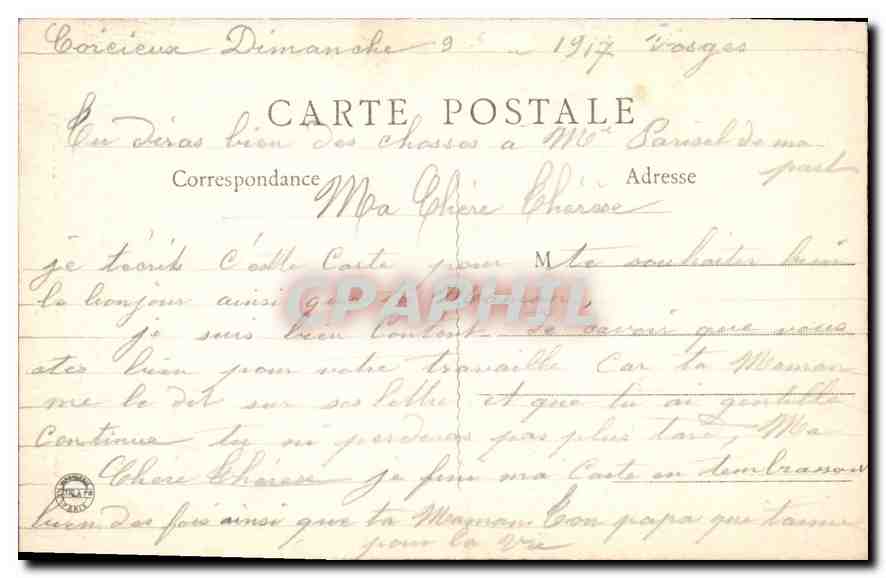 Corcieux Dimanche 9 1917 Vosges
CARTE POSTALE
Tu diras bien des chosses a Mme Parisel de ma
part
Correspondance
Adresse
Ma Chère Thérèse
je técrit c'ette Carte pour te souhaiter bien
M
le bonjour ainsi que ta Maman,
CPAPHIL
je suis bien Content de savoir que vous
ates bien pour votre travaille Car ta Maman
me le dit sur ses lettre et que tu ai gentille
Continue tu ni perderas pas plus tard, Ma
Chère Thérèse je fini ma Carte en tembrassan
bien des fois ainsi que ta Maman Ton papa que taime
pour la vie
PARIS